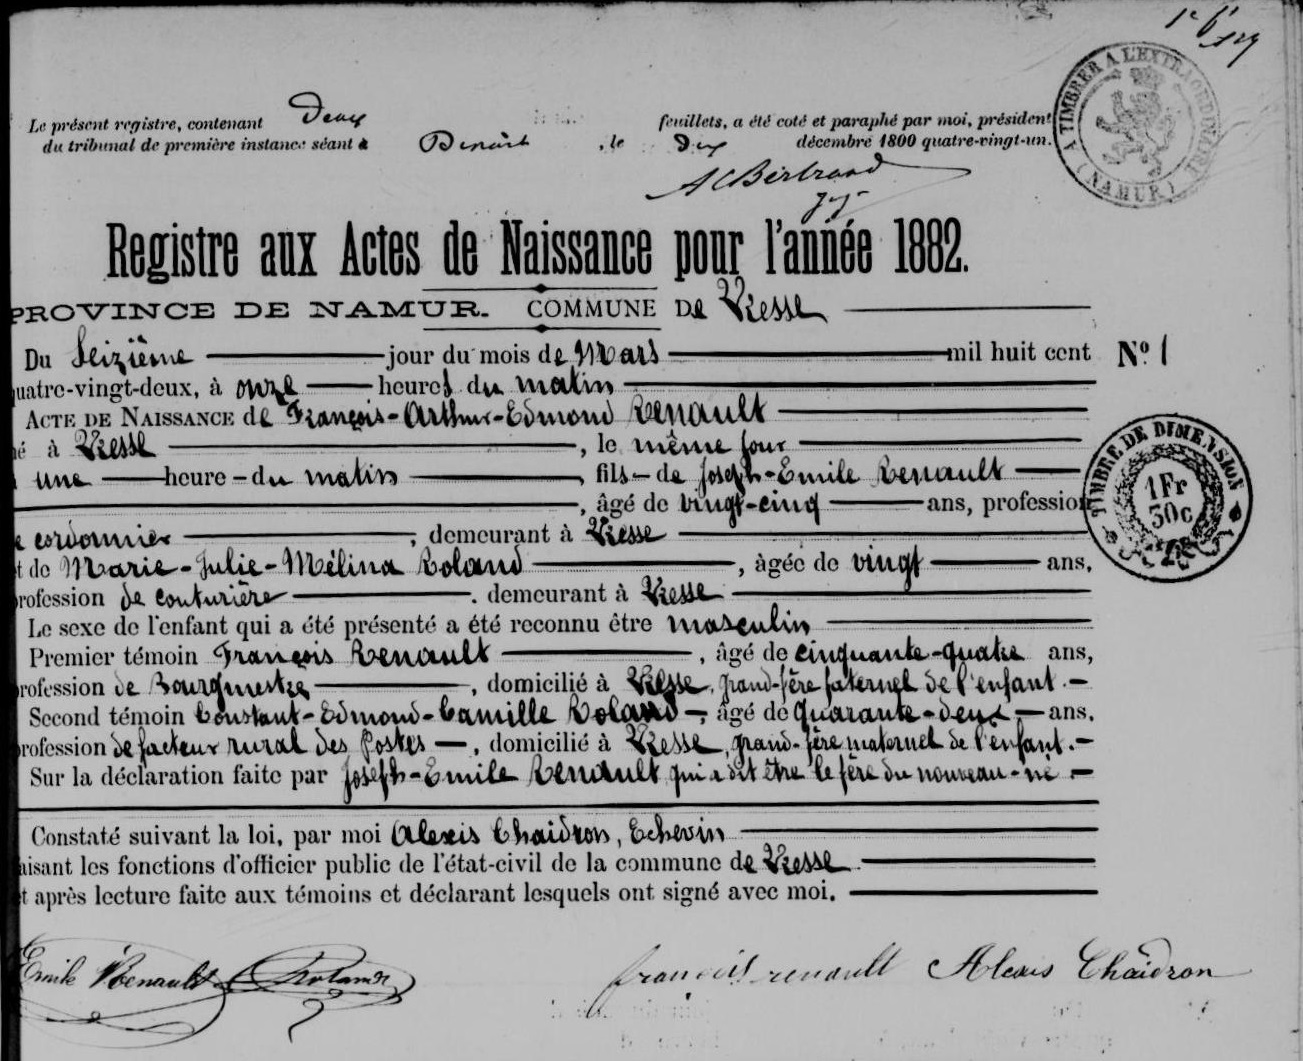 Le présent registre, contenant Deux feuillets, a été coté et paraphé par moi, président
du tribunal de première instance séant à Dinant, le deux décembre 1800 quatre-vingt-un.
A TIMBRER A L'EXTRAORDINAIRE
(NAMUR)
Registre aux Actes de Naissance pour l'année 1882.
PROVINCE DE NAMUR. COMMUNE De Vresse
Du Seizième jour du mois de Mars mil huit cent N° 1
quatre-vingt-deux, à onze heures du matin
ACTE DE NAISSANCE de François-Arthur-Edmond Renault
né à Vresse, le même jour
à une heure du matin, fils de Joseph-Emile Renault
, âgé de vingt-cinq ans, profession
de cordonnier, demeurant à Vresse
TIMBRE DE DIMENSION
1 Fr
50 c
et de Marie-Julie-Mélina Roland, âgée de vingt ans,
profession de couturière. demeurant à Vresse
Le sexe de l'enfant qui a été présenté a été reconnu être masculin
Premier témoin François Renault, âgé de cinquante-quatre ans,
profession de Bourgmestre, domicilié à Vresse, grand-père paternel de l'enfant.
Second témoin Constant-Edmond-Camille Roland, âgé de quarante-deux ans.
profession de facteur rural des Postes, domicilié à Vresse, grand-père maternel de l'enfant.
Sur la déclaration faite par Joseph-Emile Renault qui a dit être le père du nouveau-né.
Constaté suivant la loi, par moi Alexis Chaidron, Echevin
faisant les fonctions d'officier public de l'état-civil de la commune de Vresse
et après lecture faite aux témoins et déclarant lesquels ont signé avec moi.
Emile Renault Roland françois renault Alexis Chaidron